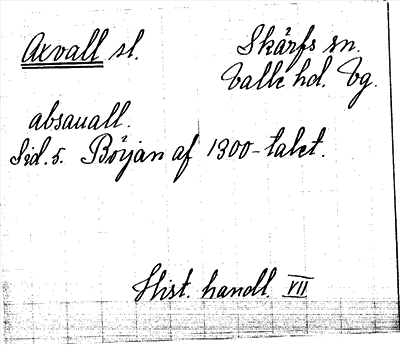 Axvall sl. Skärfs sn.
Valle hd. Vg.
absauall.
Sid. 5. Början af 1300-talet.
Hist. handl. VII